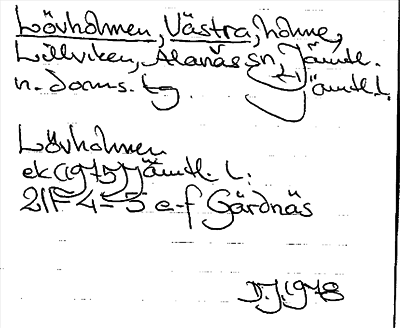 Lövholmen, Västra, holme,
Lillviken, Alanäs sn, Jämtl.
n. doms. tg. Jämtl. l.
Lövholmen
ek (1975) Jämtl. l:
21F 4-5 e-f Gärdnäs
D.J. 1978